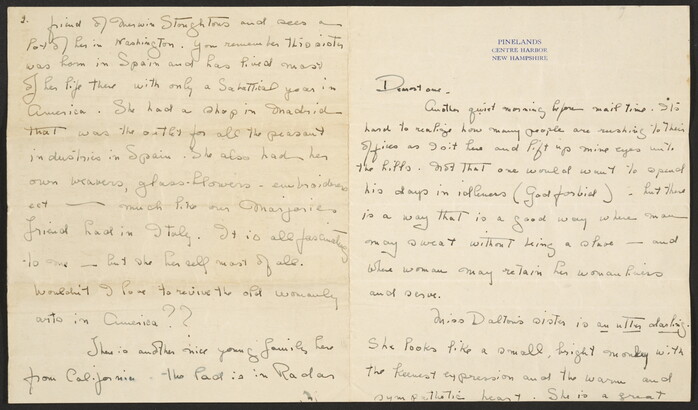 PINELANDS
CENTRE HARBOR
NEW HAMPSHIRE
Dearest one -
Another quiet morning before mail time. It's
hard to realize how many people are rushing to their
offices as I sit here and lift up mine eyes unto
the hills. Not that one would want to spend
his days in idleness (God forbid) - but there
is a way that is a good way where man
may sweat without being a slave - and
where woman may retain her womanliness
and serve.
Miss Dalton's sister is an utter darling.
She looks like a small, bright monkey with
the keenest expression and the warm and
sympathetic heart. She is a great
2.
friend of Merwin Stoughtons and sees a
lot of her in Washington. You remember this sister
was born in Spain and has lived most
of her life there with only a Sabattical year in
America. She had a shop in Madrid
that was the outlet for all the peasant
industries in Spain. She also had her
own weavers, glass-blowers - embroiderers
ect - much like our Marjorie's
friend had in Italy. It is all fascinating
to me - but she herself most of all.
Wouldn't I love to revive the old womanly
arts in America??
There is another nice young family here
from California - the lad is in Radar